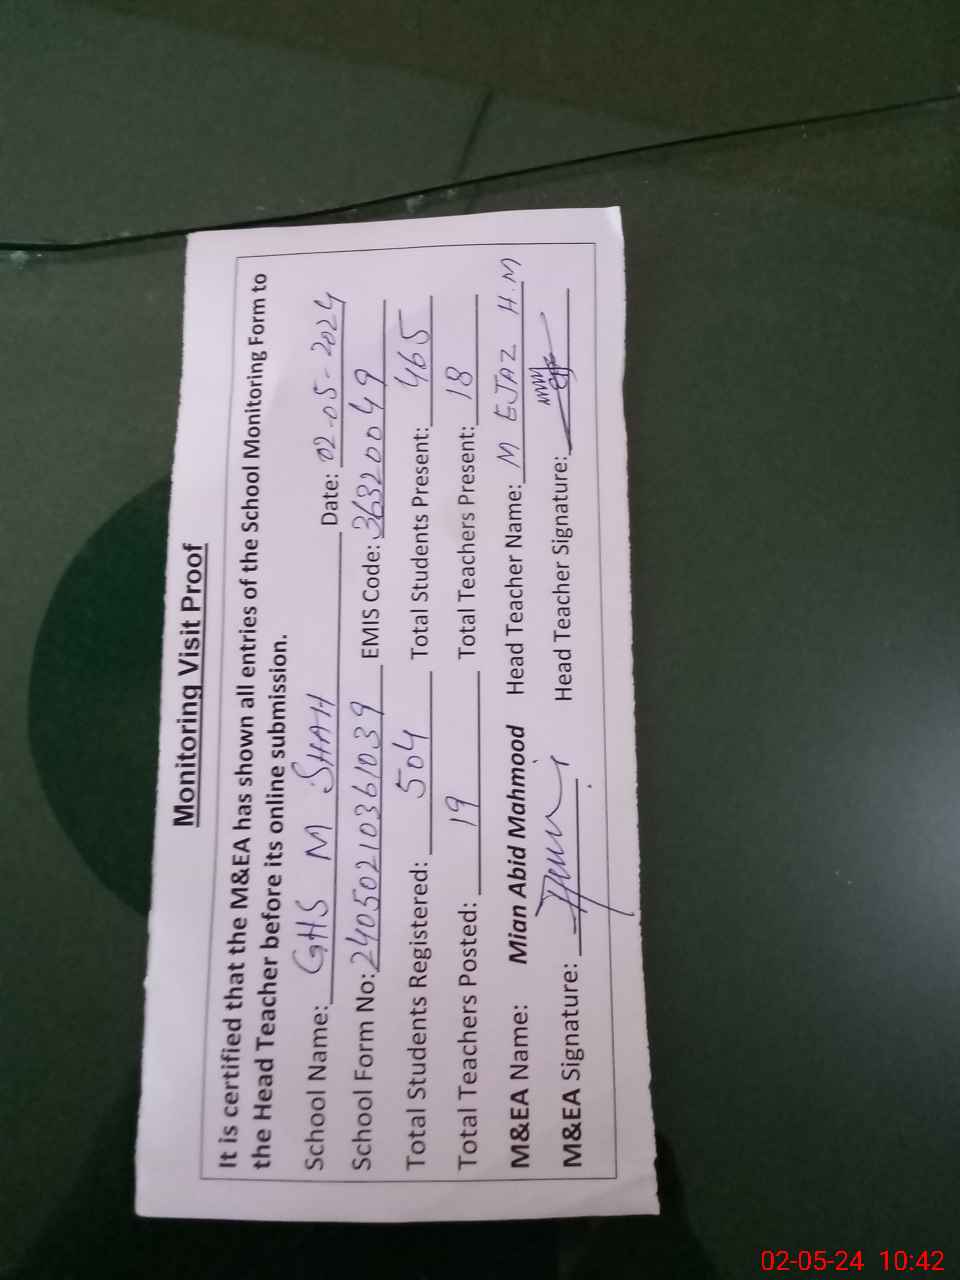 Monitoring Visit Proof
It is certified that the M&EA has shown all entries of the School Monitoring Form to
the Head Teacher before its online submission.
School Name: GHS M SHAH Date: 02-05-2024
School Form No: 24050210361039 EMIS Code: 36320049
Total Students Registered: 504 Total Students Present: 465
Total Teachers Posted: 19 Total Teachers Present: 18
M&EA Name: Mian Abid Mahmood Head Teacher Name: M EJAZ H.M
M&EA Signature: Head Teacher Signature:
02-05-24 10:42